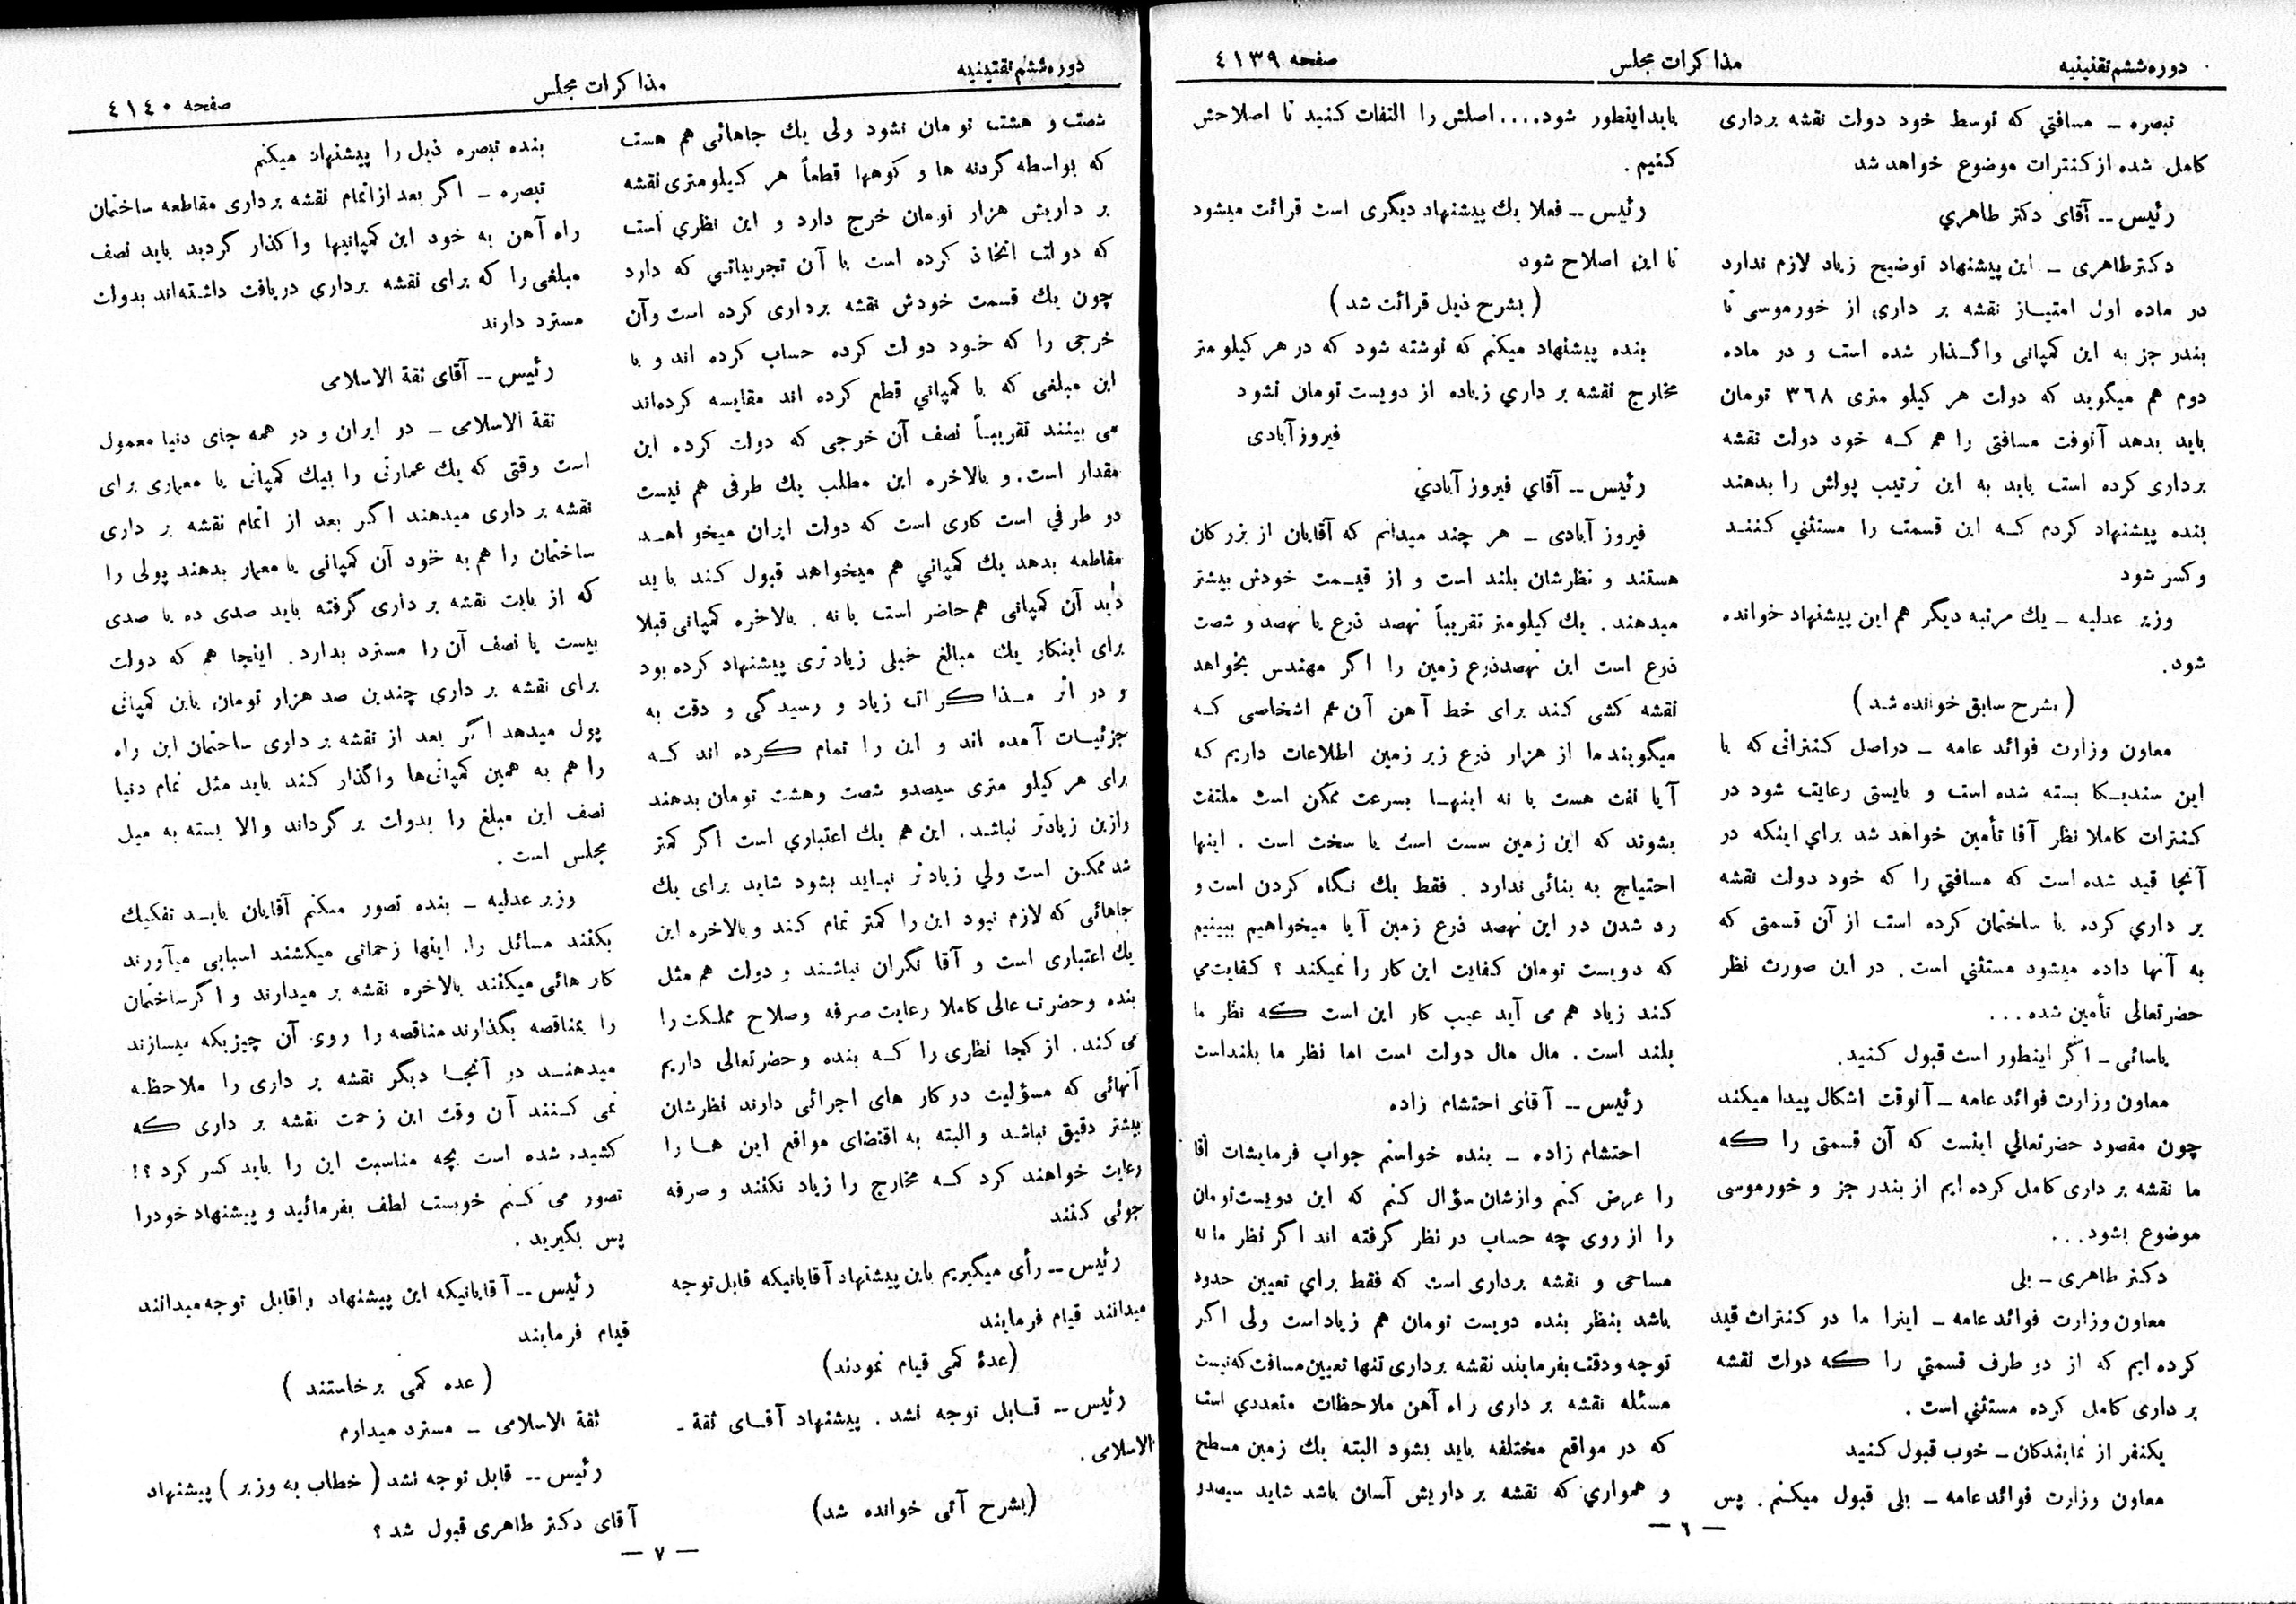 دوره ششم تقنینیه
مذاکرات مجلس
صفحه ٤١٣٩
تبصره ـ مسافتي که توسط خود دولت نقشه برداری
کامل شده از کنترات موضوع خواهد شد
رئیس ــ آقای دکتر طاهري
دکتر طاهری ـ این پیشنهاد توضیح زیاد لازم ندارد
در ماده اول امتیاز نقشه بر داری از خورموسی تا
بندر جز به این کمپانی واگذار شده است و در ماده
دوم هم میگوید که دولت هر کیلو متری ٣٦٨ تومان
باید بدهد آنوقت مسافتی را هم که خود دولت نقشه
برداری کرده است باید به این ترتیب پولش را بدهند
بنده پیشنهاد کردم که این قسمت را مستثنی کنند
و کسر شود
وزیر عدلیه ـ یك مرتبه دیگر هم این پیشنهاد خوانده
شود.
(بشرح سابق خوانده شد)
معاون وزارت فوائد عامه ـ دراصل کنتراتی که با
این سندیکا بسته شده است و بایستی رعایت شود در
کنترات کاملا نظر آقا تأمین خواهد شد براي اینکه در
آنجا قید شده است که مسافتي را که خود دولت نقشه
بر داري کرده یا ساختمان کرده است از آن قسمتی که
به آنها داده میشود مستثني است. در این صورت نظر
حضرتعالی تأمین شده ...
یاسائی ـ اگر اینطور است قبول کنید.
معاون وزارت فوائد عامه ـ آنوقت اشکال پیدا میکند
چون مقصود حضرتعالي اینست که آن قسمتی را که
ما نقشه بر داری کامل کرده ایم از بندر جز و خورموسی
موضوع بشود...
دکتر طاهری ـ بلی
معاون وزارت فوائد عامه ـ اینرا ما در کنترات قید
کرده ایم که از دو طرف قسمتي را که دولت نقشه
بر داری کامل کرده مستثني است.
یکنفر از نمایندکان ـ خوب قبول کنید
معاون وزارت فوائد عامه ـ بلی قبول میکنم. پس
باید اینطور شود.... اصلش را التفات کنید تا اصلاحش
کنیم.
رئیس ــ فعلا یك پیشنهاد دیگری است قرائت میشود
تا این اصلاح شود
(بشرح ذیل قرائت شد)
بنده پیشنهاد میکنم که نوشته شود که در هر کیلو متر
مخارج نقشه بر داري زیاده از دویست تومان نشود
فیروزآبادی
رئیس ــ آقاي فیروز آبادي
فیروز آبادی ـ هر چند میدانم که آقایان از بزرکان
هستند و نظرشان بلند است و از قیمت خودش بیشتر
میدهند. یك کیلومتر تقریباً نهصد ذرع یا نهصد و شصت
ذرع است این نهصدذرع زمین را اگر مهندس بخواهد
نقشه کشی کند برای خط آهن آن هم اشخاصی که
میگویند ما از هزار ذرع زیر زمین اطلاعات داریم که
آیا نفت هست یا نه اینها بسرعت ممکن است ملتفت
بشوند که این زمین سست است یا سخت است. اینها
احتیاج به بنائی ندارد. فقط یك نگاه کردن است و
رد شدن در این نهصد ذرع زمین آیا میخواهیم ببینیم
که دویست تومان کفایت این کار را نمیکند؟ کفایت می
کند زیاد هم می آید عیب کار این است که نظر ما
بلند است. مال مال دولت است اما نظر ما بلنداست
رئیس ــ آقای احتشام زاده
احتشام زاده ـ بنده خواستم جواب فرمایشات آقا
را عرض کنم وازشان سؤال کنم که این دویست تومان
را از روی چه حساب در نظر گرفته اند اگر نظر ما به
مساحی و نقشه برداری است که فقط براي تعیین حدود
باشد بنظر بنده دویست تومان هم زیاد است ولی اگر
توجه و دقت بفرمایند نقشه برداری تنها تعیین مسافت که نیست
مسئله نقشه بر داری راه آهن ملاحظات متعددي است
که در مواقع مختلفه باید بشود البته یك زمین مسطح
و همواري که نقشه بر داریش آسان باشد شاید سیصدر
— ٦ —
دوره ششم تقنینیه
مذاکرات مجلس
صفحه ٤١٤٠
شصت و هشت تومان نشود ولی یك جاهائی هم هست
که بواسطه گردنه ها و کوهها قطعاً هر کیلومتری نقشه
بر داریش هزار تومان خرج دارد و این نظري است
که دولت اتخاذ کرده است با آن تجربیاتی که دارد
چون یك قسمت خودش نقشه برداری کرده است وآن
خرجی را که خود دولت کرده حساب کرده اند و با
این مبلغی که با کمپاني قطع کرده اند مقایسه کرده اند
می بینند تقریباً نصف آن خرجی که دولت کرده این
مقدار است. و بالاخره این مطلب یك طرفی هم نیست
دو طرفي است کاری است که دولت ایران میخواهد
مقاطعه بدهد یك کمپاني هم میخواهد قبول کند باید
دید آن کمپانی هم حاضر است یا نه. بالاخره کمپانی قبلا
برای اینکار یك مبالغ خیلی زیادتری پیشنهاد کرده بود
و در اثر مذاکرات زیاد و رسیدگی و دقت به
جزئیات آمده اند و این را تمام کرده اند که
برای هر کیلو متری سیصدو شصت وهشت تومان بدهند
وازین زیادتر نباشد. این هم یك اعتباري است اگر کمتر
شد ممکن است ولي زیادتر نباید بشود شاید برای یك
جاهائی که لازم نبود این را کمتر تمام کند وبالاخره این
یك اعتباری است و آقا نگران نباشند و دولت هم مثل
بنده وحضرت عالی کاملا رعایت صرفه وصلاح مملکت را
می کند. از کجا نظری را که بنده وحضرتعالی داریم
آنهائی که مسؤلیت در کار های اجرائی دارند نظرشان
بیشتر دقیق نباشد والبته به اقتضای مواقع این ها را
رعایت خواهند کرد که مخارج را زیاد نکنند و صرفه
جوئی کنند
رئیس ــ رأی میگیریم باین پیشنهاد آقایانیکه قابل توجه
میدانند قیام فرمایند
(عدۀ کمی قیام نمودند)
رئیس ــ قابل توجه نشد. پیشنهاد آقای ثقة ـ
الاسلامی.
(بشرح آتی خوانده شد)
بنده تبصره ذیل را پیشنهاد میکنم
تبصره ـ اگر بعد از اتمام نقشه برداری مقاطعه ساختمان
راه آهن به خود این کمپانیها واگذار گردید باید نصف
مبلغی را که برای نقشه برداري دریافت داشته اند بدولت
مسترد دارند
رئیس ــ آقای ثقة الاسلامی
ثقة الاسلامی ـ در ایران و در همه جای دنیا معمول
است وقتی که یك عمارتی را بیك کمپانی یا معماری برای
نقشه بر داری میدهند اگر بعد از اتمام نقشه بر داری
ساختمان را هم به خود آن کمپانی یا معمار بدهند پولی را
که از بابت نقشه بر داری گرفته باید صدی ده یا صدی
بیست یا نصف آن را مسترد بدارد. اینجا هم که دولت
برای نقشه بر داری چندین صد هزار تومان باین کمپانی
پول میدهد اگر بعد از نقشه بر داری ساختمان این راه
را هم به همین کمپانی‌ها واگذار کند باید مثل تمام دنیا
نصف این مبلغ را بدولت بر گرداند والا بسته به میل
مجلس است.
وزیر عدلیه ـ بنده تصور میکنم آقایان باید تفکیك
بکنند مسائل را. اینها زحماتی میکشند اسبابی میآورند
کار هائی میکنند بالاخره نقشه بر میدارند و اگر ساختمان
را بمناقصه بگذارند مناقصه را روی آن چیزیکه میسازند
میدهند در آنجا دیگر نقشه بر داری را ملاحظه
نمی کنند آن وقت این زحمت نقشه بر داری که
کشیده شده است بچه مناسبت این را باید کسر کرد؟!
تصور می کنم خوبست لطف بفرمائید و پیشنهاد خودرا
پس بگیرید.
رئیس ــ آقایانیکه این پیشنهاد راقابل توجه میدانند
قیام فرمایند
(عده کمی برخاستند)
ثقة الاسلامی ـ مسترد میدارم
رئیس ــ قابل توجه نشد (خطاب به وزیر) پیشنهاد
آقای دکتر طاهری قبول شد؟
— ٧ —